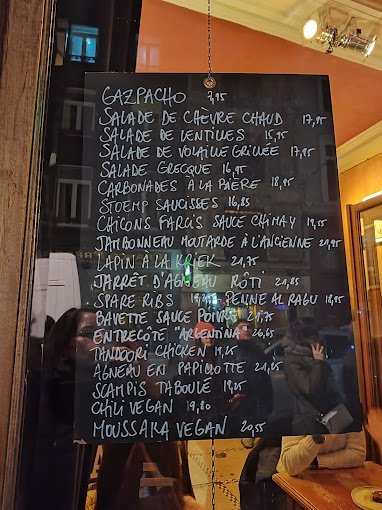 GAZPACHO 7,95
SALADE DE CHÈVRE CHAUD 17,95
SALADE DE LENTILLES 15,95
SALADE DE VOLAILLE GRILLÉE 17,95
SALADE GRECQUE 16,95
CARBONADES À LA BIÈRE 18,95
STOEMP SAUCISSES 16,85
CHICONS FARCIS SAUCE CHIMAY 19,55
JAMBONNEAU MOUTARDE À L'ANCIENNE 21,95
LAPIN À LA KRIEK 21,75
JARRÊT D'AGNEAU RÔTI 21,85
SPARE RIBS PENNE AL RAGU 18,95
BAVETTE SAUCE POIVRE 21,75
ENTRECÔTE "ARGENTINA" 26,65
TANDOORI CHICKEN 19,25
AGNEAU EN PAPILLOTTE 21,85
SCAMPIS TABOULÉ 19,25
CHILI VEGAN 19,80
MOUSSAKA VEGAN 20,55